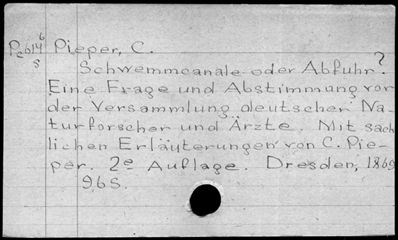 Pc614 6 Pieper, C.
8 Schwemmcanale oder Abfuhr?
Eine Frage und Abstimmung vor
der Versammlung deutscher Na-
turforscher und Ärzte. Mit sach
lichen Erläuterungen von C. Pie-
per. 2e Auflage. Dresden, 1869
96S.